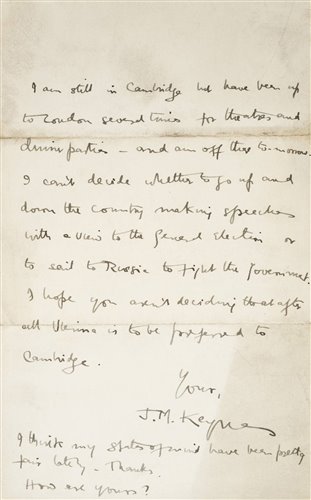 I am still in Cambridge but have been up
to London several times for theatres and
dinner parties – and am off there to-morrow.
I can't decide whether to go up and
down the country making speeches
with a view to the General Election or
to sail to Russia to fight the Government.
I hope you aren't deciding that after
all Vienna is to be preferred to
Cambridge.
Yours,
J.M. Keynes
I think my states of mind have been pretty
fair lately – Thanks.
How are yours?